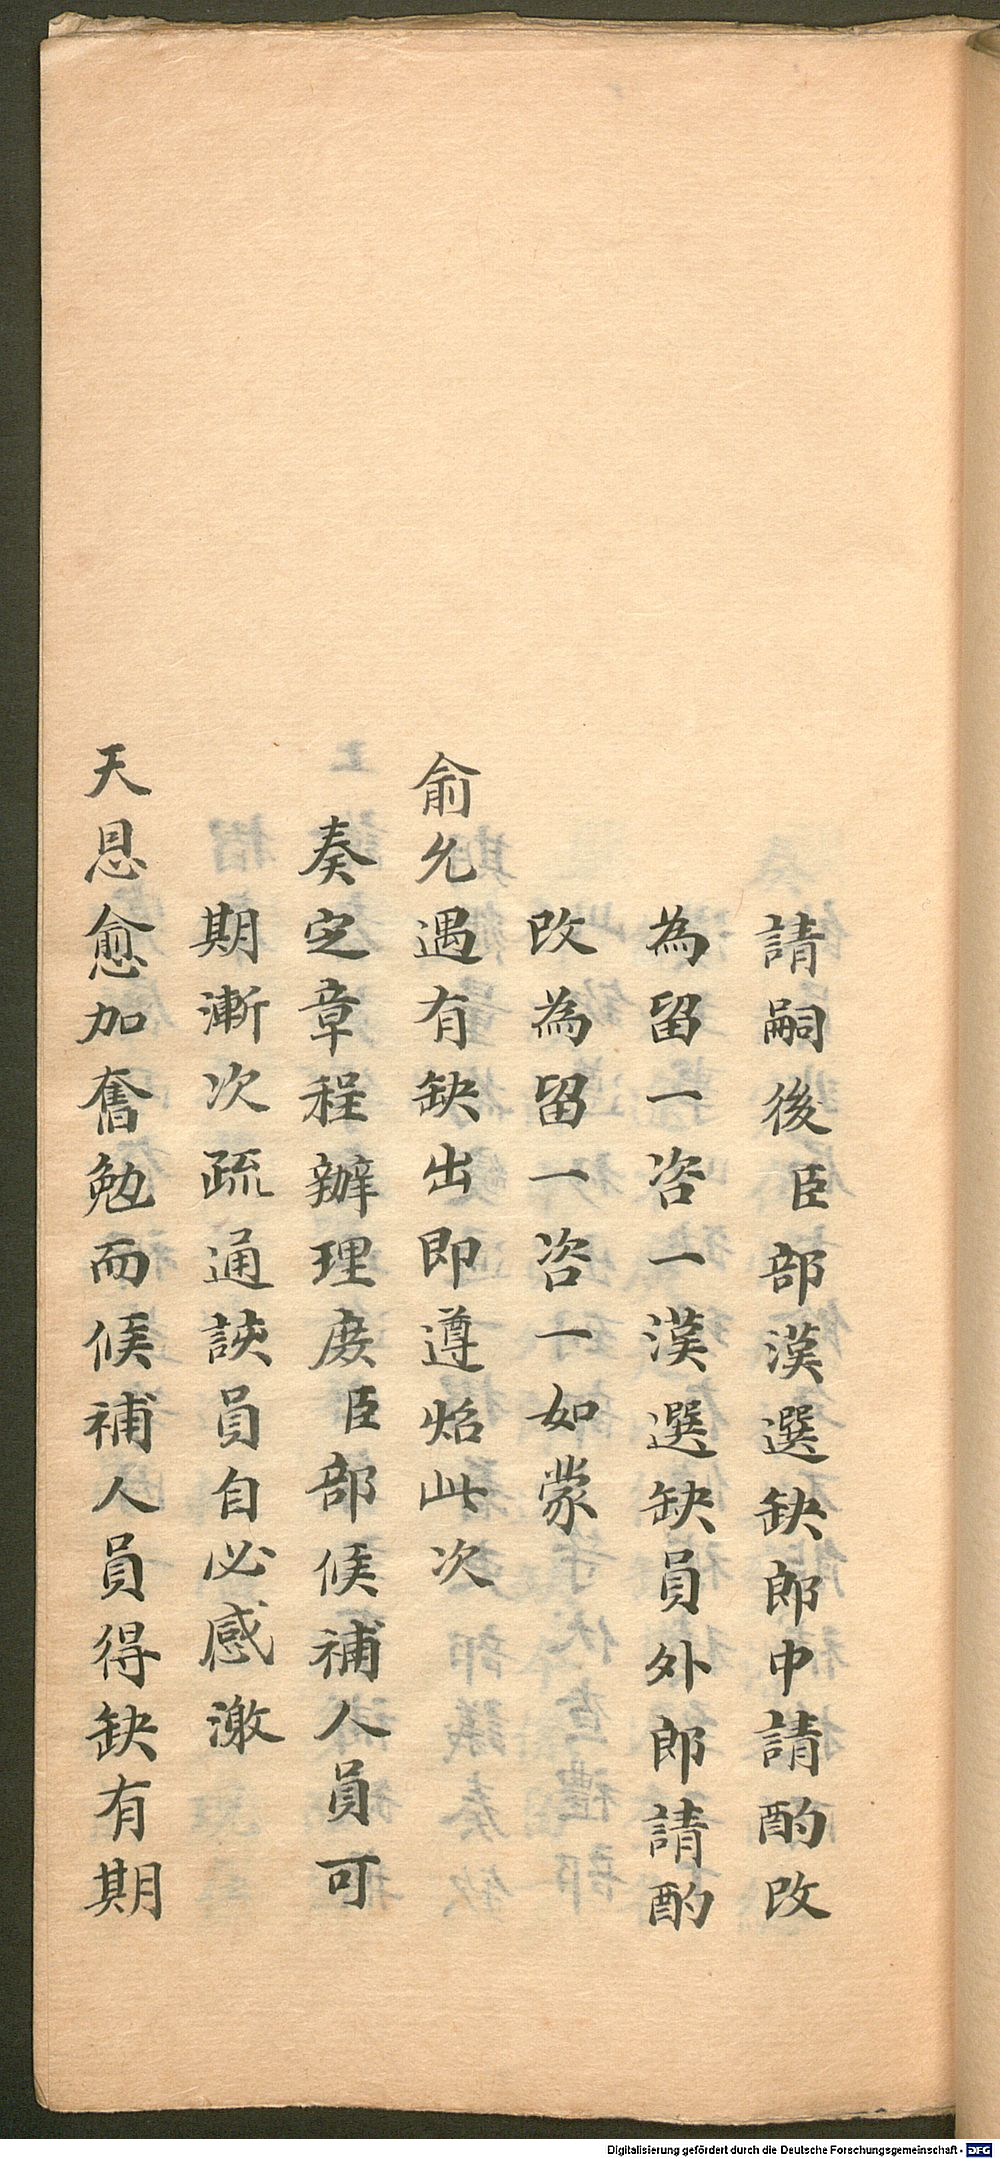 請嗣後臣部漢選缺郎中請酌改
為留一咨一漢選缺員外郎請酌
改為留一咨一如蒙
俞允遇有缺出即遵炤此次
奏定章程辦理庻臣部候補人員可
期漸次疏通該員自必感激
天恩愈加奮勉而候補人員得缺有期
Digitalisierung gefördert durch die Deutsche Forschungsgemeinschaft - DFG